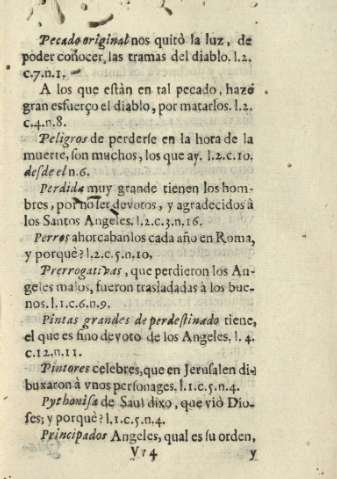 Pecado original nos quitò la luz, de
poder conocer, las tramas del diablo. l.2.
c.7.n.1.
A los que estàn en tal pecado, haze
gran esfuerço el diablo, por matarlos. l.2.
c.4.n.8.
Peligros de perderse en la hora de la
muerte, son muchos, los que ay. l.2.c.10.
desde el n.6.
Perdida muy grande tienen los hom-
bres, por no ser devotos, y agradecidos à
los Santos Angeles. l.2.c.3.n.16.
Perros ahorcabanlos cada año en Roma,
y porquè? l.2.c.5.n.10.
Prerrogativas, que perdieron los An-
geles malos, fueron trasladadas à los bue-
nos. l.1.c.6.n.9.
Pintas grandes de perdestinado tiene,
el que es fino devoto de los Angeles. l. 4.
c.12.n.11.
Pintores celebres, que en Jerusalen di-
buxaron à vnos personages. l.1.c.5.n.4.
Pythonisa de Saul dixo, que viò Dio-
ses; y porquè? l.1.c.5.n.4.
Principados Angeles, qual es su orden,
Vv4 y